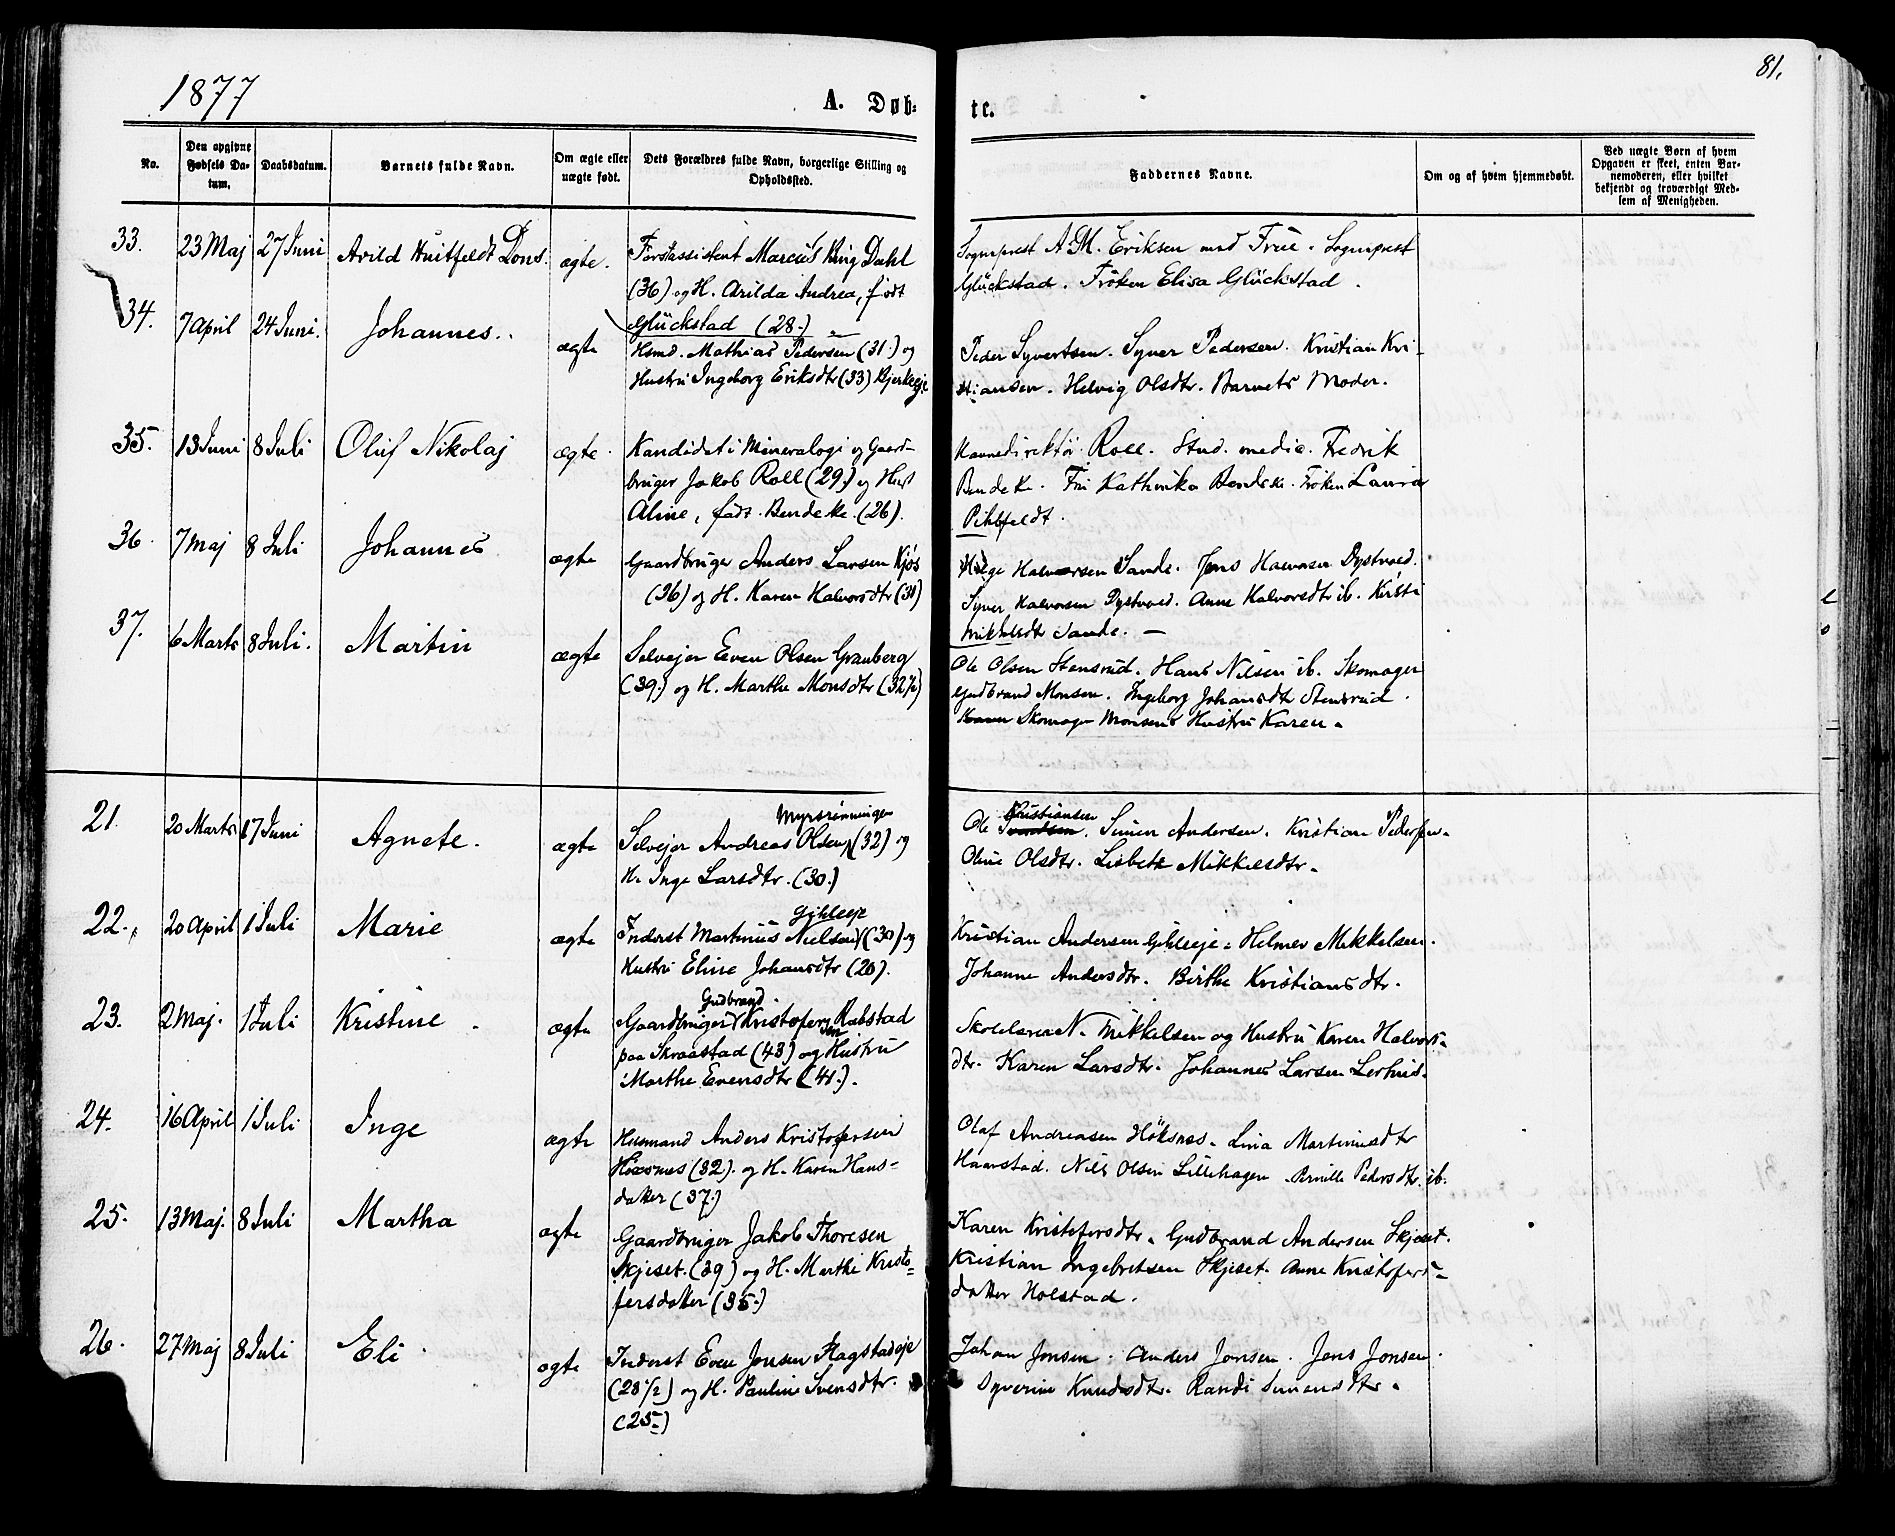 1877
A. Døb-
te.
81.
No.
Den opgivne Fødsels Da-
tum.
Daabsdatum.
Barnets fulde Navn.
Om ægte eller uægte født.
Dets Forældres fulde Navn, borgerlige Stilling og
Opholdssted.
Faddernes Navne.
Om og af hvem hjemmedøbt.
Ved uægte Børn af hvem
Opgaven er skeet, enten Bar-
nemoderen, eller hvilket
bekjendt og troværdigt Med-
lem af Menigheden.
33. 23 Maj 27 Juni Arild Huitfeldt Dons. ægte.
Forstassistent Marcus Ring Dahl
(36) og H. Arilda Andrea, født
Glückstad (28.)
Sogneprest A. M. Eriksen med Frue. Sogneprest
Glückstad. Frøken Elisa Glückstad.
34. 7 April 24 Juni. Johannes. ægte
Hsmd. Mathias Pedersen (31.) og
Hustru Ingeborg Eriksdtr (33) Bjerkeeje
Peder Syvertsen. Syver Pedersen. Kristian Kri-
stiansen. Helvig Olsdtr. Barnets Moder.
35. 13 Juni 8 Juli Oluf Nikolaj ægte.
Kandidat i Mineralogi og Gaard-
bruger Jakob Roll (29.) og Hust
Aline, født Bendeke. (26).
Havnedirektør Roll. Stud. medic. Fredrik
Bendeke. Fru Kathinka Bendeke. Frøken Laura
Pihlfeldt.
36. 7 Maj 8 Juli Johannes ægte
Gaardbruger Anders Larsen Kjos
(36) og H. Karen Halvorsdtr (31)
Helge Halvorsen Sande. Jens Halvorsen Dystvold.
Syver Halvorsen Dystvold. Anne Halvorsdtr ib. Kirsti
Mikkelsdtr Sande. —
37. 6 Marts 8 Juli. Martin ægte
Selvejer Even Olsen Granberg
(39.) og H. Marthe Monsdtr (32½)
Ole Olsen Stensrud. Hans Nilsen ib. Skomager
Gudbrand Monsen. Ingeborg Johansdtr Stensrud.
Skomager Monsens Hustru Karen.
21. 20 Marts 17 Juni Agnete. ægte
Myrsrønningen
Selvejer Andreas Olsen (32) og
H. Inge Larsdtr. (30.)
Kristiansen
Ole Simen Andersen. Kristian Pedersen.
Oline Olsdtr. Lisbeth Mikkelsdtr.
22. 20 April 1 Juli Marie ægte
Gihleeje
Inderst Martinus Nielsen (30) og
Hustru Eline Johansdtr (20).
Kristian Andersen Gihleeje. Helmer Mikkelsen.
Johanne Andersdtr. Birthe Kristiansdtr.
23. 2 Maj. 1 Juli Kristine. ægte
Gudbrand
Gaardbruger Kristofersen Rabstad
paa Skraastad (43) og Hustru
Marthe Evensdtr (41.).
Skolelærer N. Mikkelsen og Hustru Karen Halvors-
dtr. Karen Larsdtr. Johannes Larsen Lerhus.
24. 16 April 1 Juli Inge ægte
Husmand Anders Kristofersen
Høxnæs (32). og H. Karen Hans-
datter (37.)
Olaf Andreasen Høksnes. Lina Martinusdtr
Haarstad. Nils Olsen Lillehagen. Pernille Pedersdtr. ib.
25. 13 Maj. 8 Juli Martha ægte
Gaardbruger Jakob Thoresen
Skjeset. (39) og H. Marthe Kristo-
fersdatter (35.)
Karen Kristofersdtr. Gudbrand Andersen Skjeset.
Kristian Ingebretsen Skjeset. Anne Kristofers-
datter Holstad.
26. 27 Maj 8 Juli Eli ægte
Inderst Even Jonsen Flagstadeje
(28½) og H. Pauline Svensdtr.
(25.)
Johan Jonsen. Anders Jonsen. Jens Jonsen.
Syverine Knudsdtr. Randi Simensdtr.